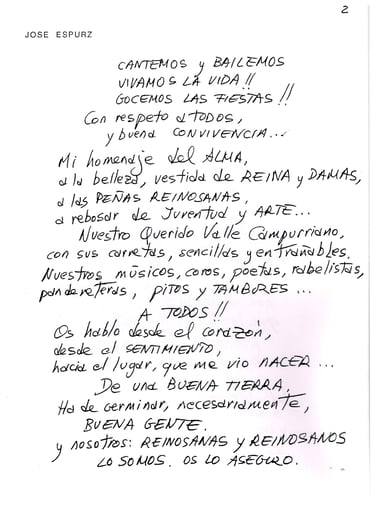 2
JOSE ESPURZ
CANTEMOS y BAILEMOS
VIVAMOS LA VIDA!!
GOCEMOS LAS FIESTAS!!
Con respeto a TODOS,
y buena CONVIVENCIA...
Mi homenaje del ALMA,
a la belleza, vestida de REINA y DAMAS,
a las PEÑAS REINOSANAS,
a rebosar de Juventud y ARTE...
Nuestro Querido Valle Campurriano,
con sus carretas, sencillas y entrañables.
Nuestros músicos, coros, poetas, rabelistas,
pandereteras, PITOS y TAMBORES...
A TODOS!!
Os hablo desde el corazón,
desde el SENTIMIENTO,
hacia el lugar, que me vio NACER...
De una BUENA TIERRA,
Ha de germinar, necesariamente,
BUENA GENTE.
y nosotros: REINOSANAS y REINOSANOS
LO SOMOS. OS LO ASEGURO.